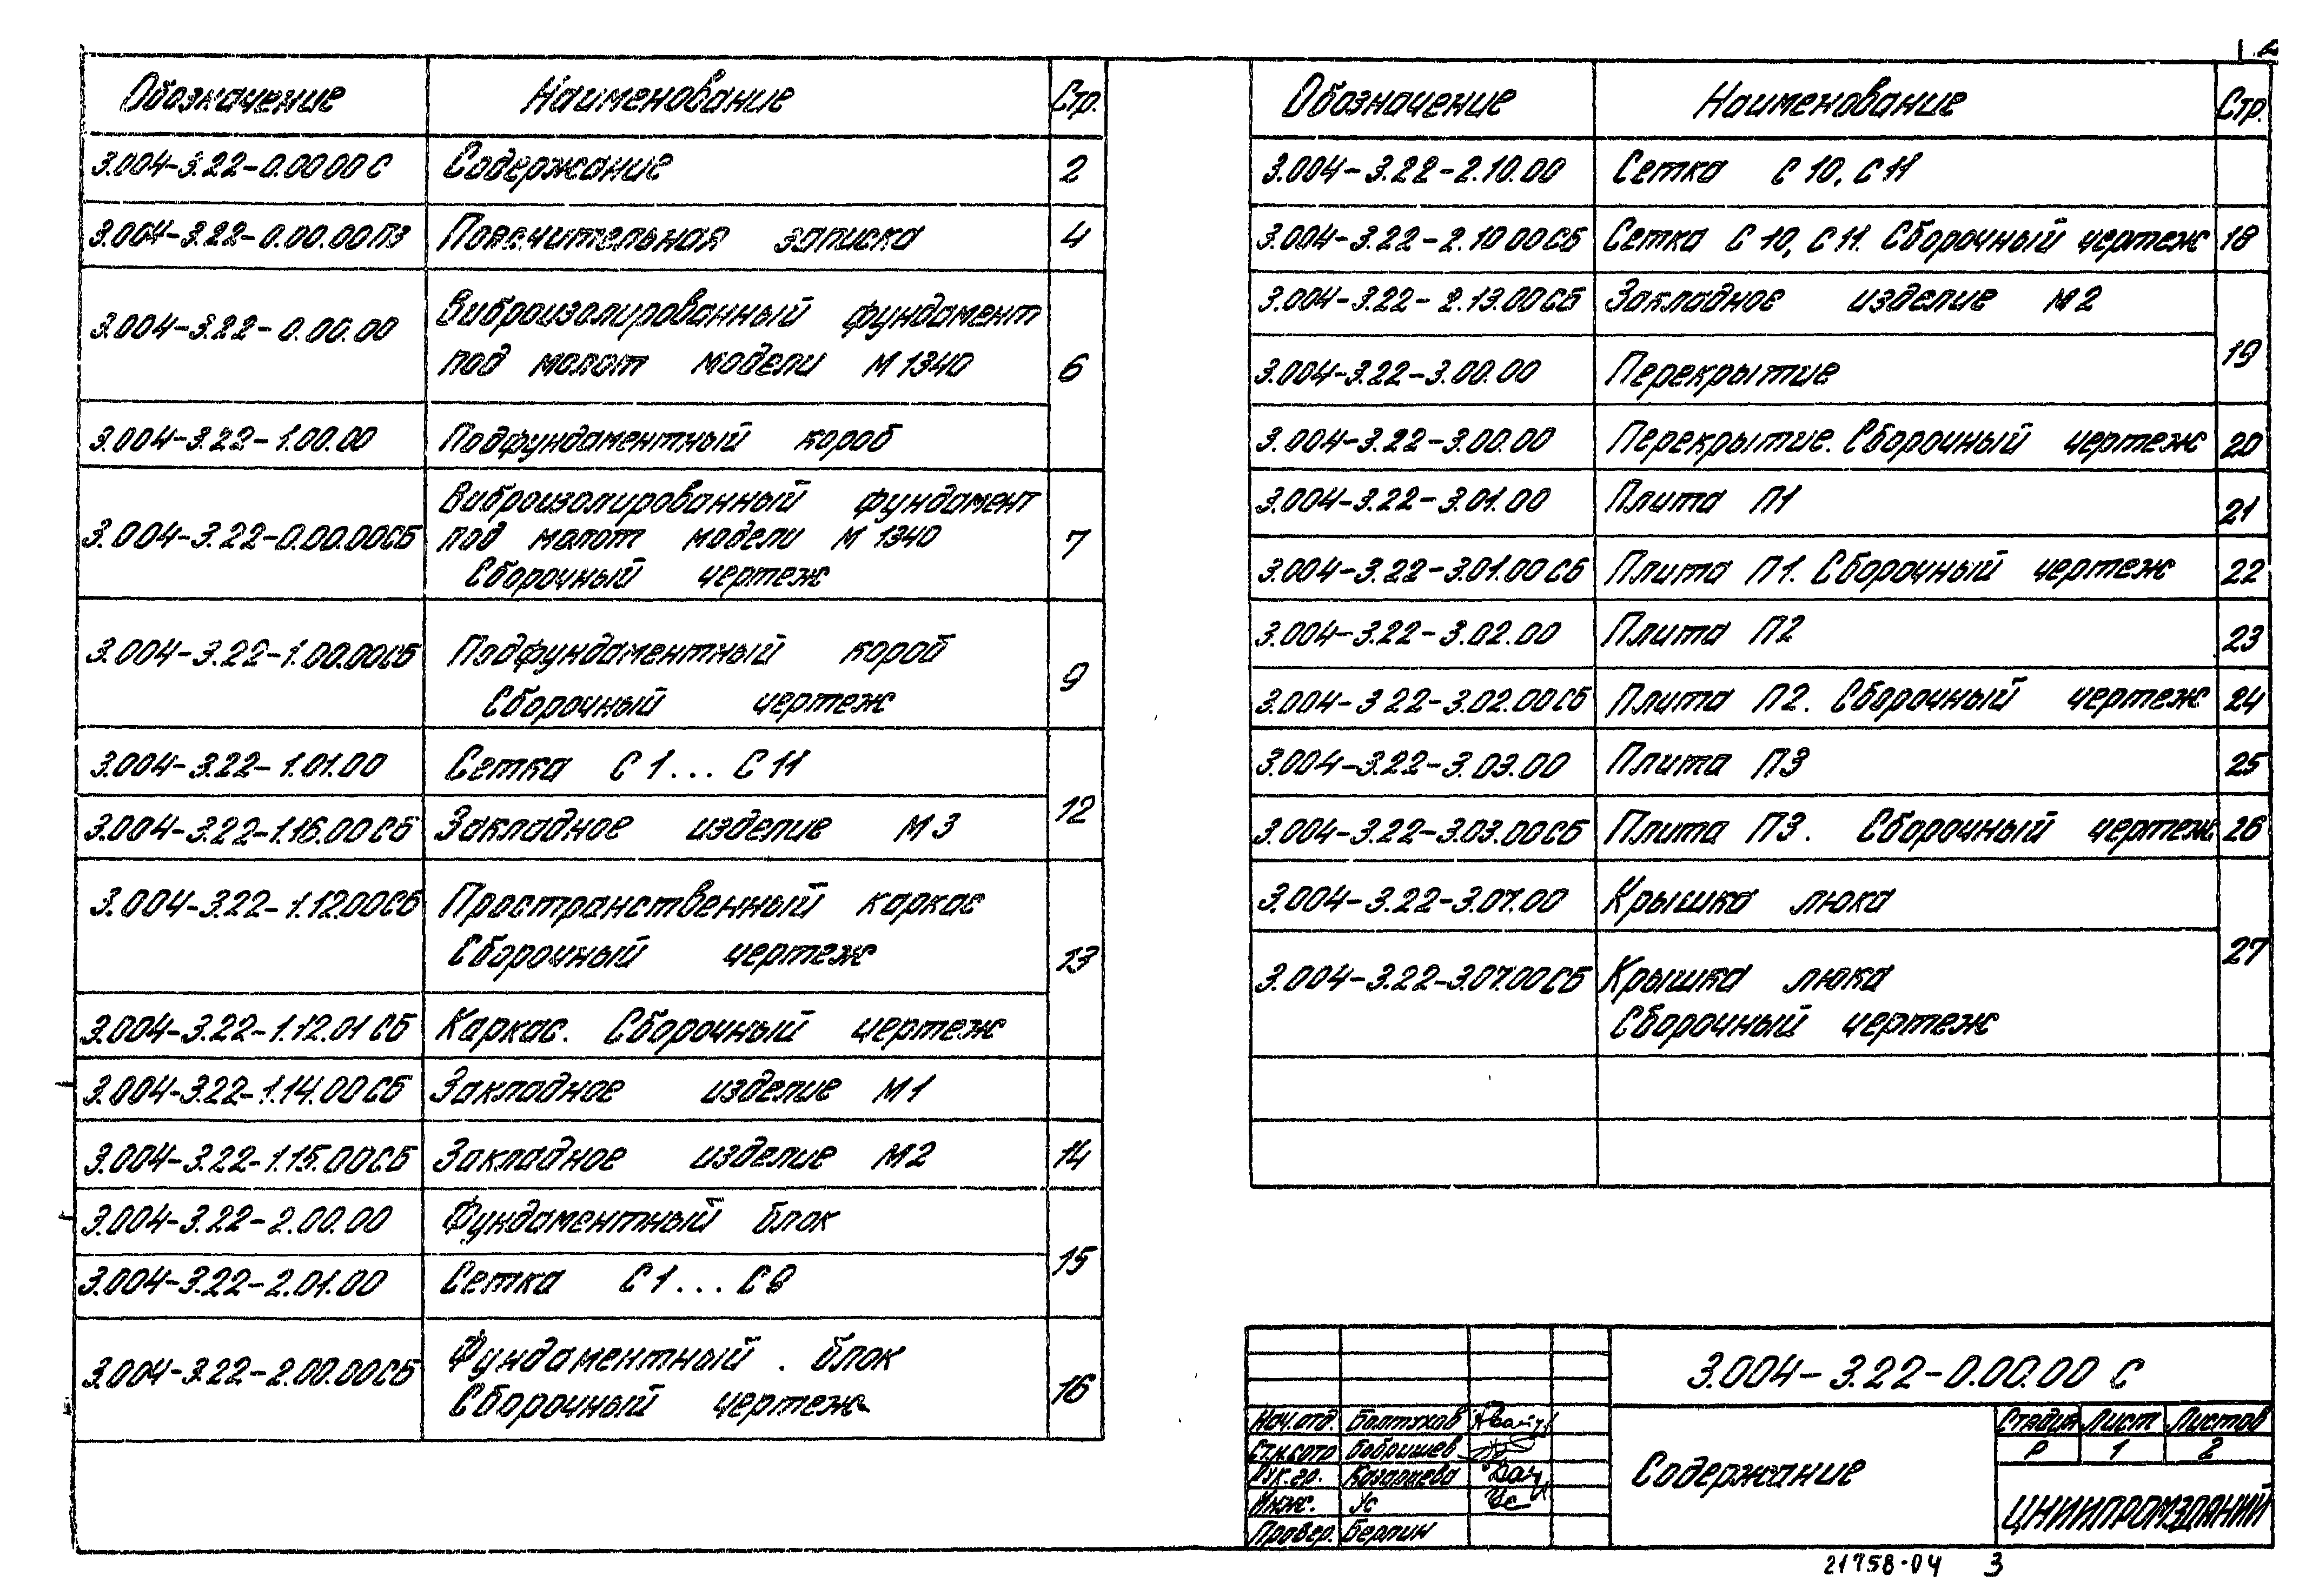 Обозначение Наименование Стр.
3.004-3.22-0.00 00 С Содержание 2
3.004-3.22-0.00.00ПЗ Пояснительная записка 4
3.004-3.22-0.00.00 Виброизолированный фундамент
под молот модели М 1340 6
3.004-3.22-1.00.00 Подфундаментный короб
3.004-3.22-0.00.00СБ Виброизолированный фундамент
под молот модели М 1340 7
Сборочный чертеж
3.004-3.22-1.00.00СБ Подфундаментный короб
Сборочный чертеж 9
3.004-3.22-1.01.00 Сетка С 1... С 11
12
3.004-3.22-1.16.00 СБ Закладное изделие М 3
3.004-3.22-1.12.00СБ Пространственный каркас
Сборочный чертеж 13
3.004-3.22-1.12.01 СБ Каркас. Сборочный чертеж
3.004-3.22-1.14.00 СБ Закладное изделие М 1
3.004-3.22-1.15.00СБ Закладное изделие М2 14
3.004-3.22-2.00.00 Фундаментный блок
15
3.004-3.22-2.01.00 Сетка С 1... С 9
3.004-3.22-2.00.00СБ Фундаментный блок
Сборочный чертеж 16
Обозначение Наименование Стр.
3.004-3.22-2.10.00 Сетка С 10, С 11
3.004-3.22-2.10 00СБ Сетка С 10, С 11. Сборочный чертеж 18
3.004-3.22-2.13.00СБ Закладное изделие М2
19
3.004-3.22-3.00.00 Перекрытие
3.004-3.22-3.00.00 Перекрытие. Сборочный чертеж 20
3.004-3.22-3.01.00 Плита П1 21
3.004-3.22-3.01.00 СБ Плита П1. Сборочный чертеж 22
3.004-3.22-3.02.00 Плита П2 23
3.004-3 22-3.02.00СБ Плита П2. Сборочный чертеж 24
3.004-3.22-3.03.00 Плита П3 25
3.004-3.22-3.03.00СБ Плита П3. Сборочный чертеж 26
3.004-3.22-3.07.00 Крышка люка
27
3.004-3.22-3.07.00СБ Крышка люка
Сборочный чертеж
3.004-3.22-0.00.00 С
Нач.отд. Болтухов
Бобрышев
Рук.гр. Казарцева
Инж. Ус
Провер. Берлин
Содержание
Стадия Лист Листов
Р 1 2
ЦНИИПРОМЗДАНИЙ
21758-04 3